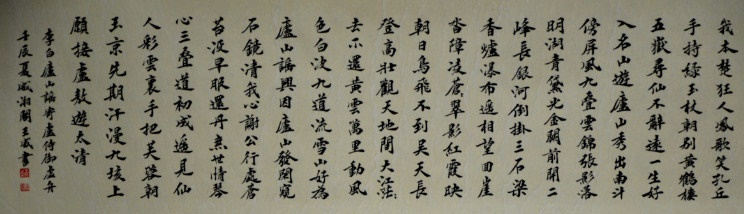 我本楚狂人鳳歌笑孔丘
手持綠玉杖朝別黃鶴樓
五嶽尋仙不辭遠一生好
入名山遊廬山秀出南斗
傍屏風九疊雲錦張影落
明湖青黛光金闕前開二
峰長銀河倒掛三石梁
香爐瀑布遙相望回崖
沓障凌蒼翠影紅霞映
朝日鳥飛不到吳天長
登高壯觀天地間大江茫々
去不還黃雲萬里動風
色白波九道流雪山好為
廬山謠興因廬山發閑窺
石鏡清我心謝公行處蒼
苔沒早服還丹無世情琴
心三疊道初成遙見仙
人彩雲裏手把芙蓉朝
玉京先期汗漫九垓上
願接盧敖遊太清
李白廬山謠寄盧侍御虛舟
壬辰夏